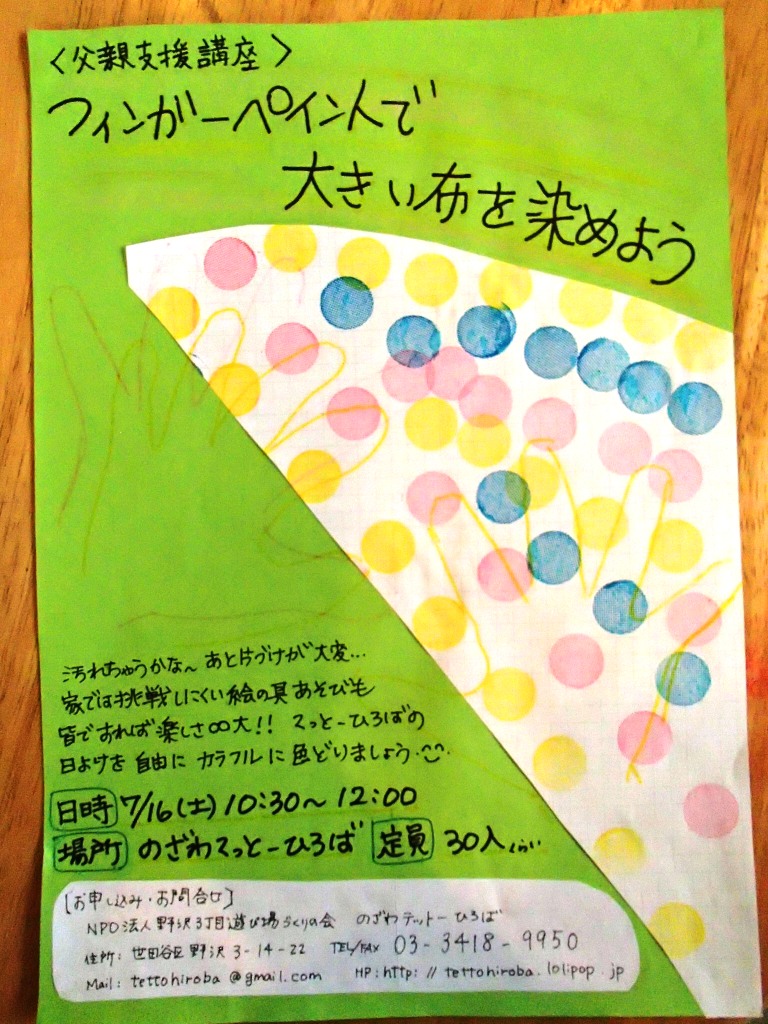 〈父親支援講座〉
フィンガーペイントで
大きい布を染めよう
汚れちゃうかな〜 あと片づけが大変...
家では挑戦しにくい絵の具あそびも
皆ですれば楽しさ∞大!! てっとーひろばの
日よけを自由にカラフルに色どりましょう
日時 7/16(土) 10:30〜12:00
場所 のざわてっとーひろば 定員 30人くらい
[お申し込み・お問合せ]
NPO法人 野沢3丁目遊び場づくりの会 のざわテットーひろば
住所: 世田谷区野沢 3-14-22 TEL/FAX 03-3418-9950
Mail: tettohiroba@gmail.com HP: http://tettohiroba.lolipop.jp